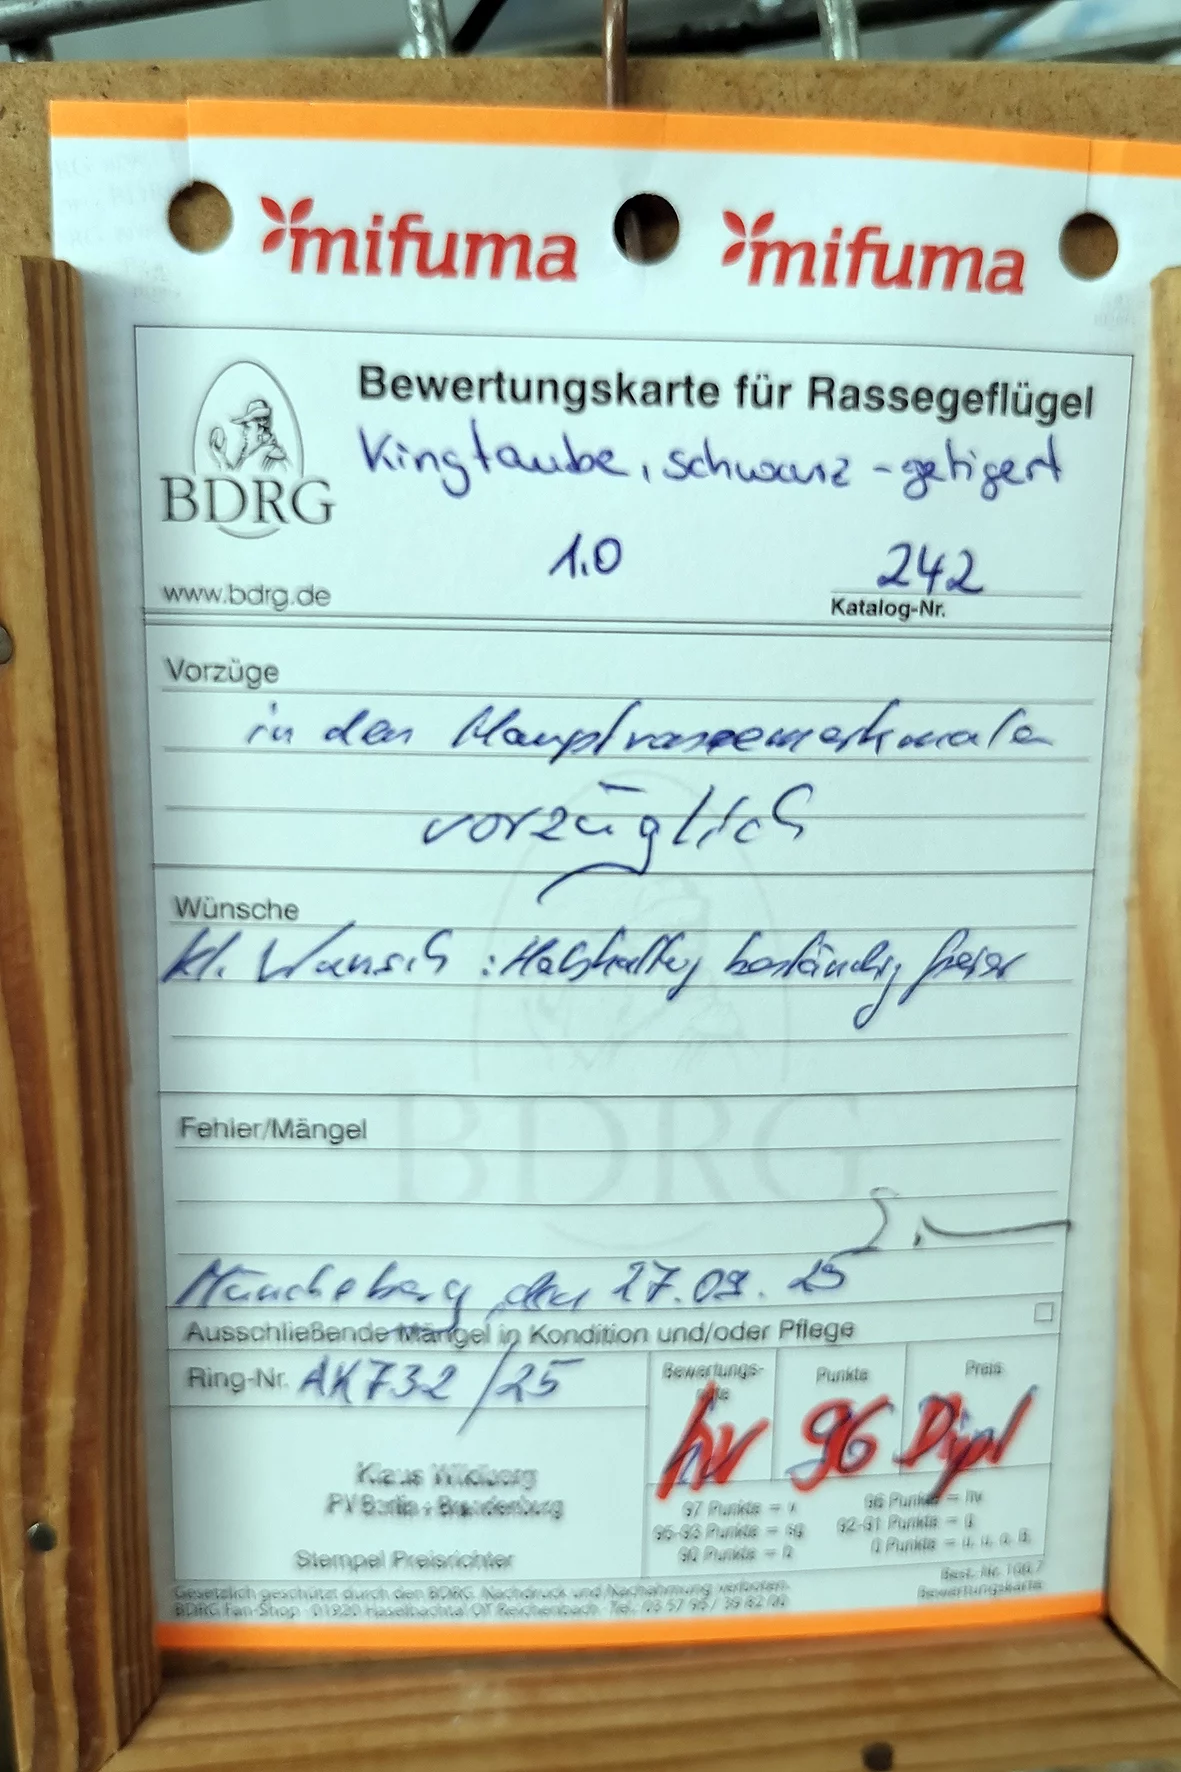 mifuma mifuma
Bewertungskarte für Rassegeflügel
Kingtaube, schwarz-getigert
BDRG
1.0 242
www.bdrg.de
Katalog-Nr.
Vorzüge
in den Hauptrassemerkmalen
vorzüglich
Wünsche
kl. Wunsch : Halshaltung beständig freier
Fehler/Mängel
BDRG
Müncheberg, den 27.09.25
Ausschließende Mängel in Kondition und/oder Pflege
Ring-Nr. AK732/25
Bewertungs- Punkte Preis
note
hv 96 Dipl
Klaus
PV Berlin - Brandenburg
97 Punkte = v 96 Punkte = hv
95-93 Punkte = sg 92-91 Punkte = g
90 Punkte = b 0 Punkte = u, u, o, B,
Stempel Preisrichter
Best.-Nr. 100.7
Bewertungskarte
Gesetzlich geschützt durch den BDRG. Nachdruck und Nachahmung verboten.
BDRG Fan-Shop · 01920 Haselbachtal OT Reichenbach · Tel.